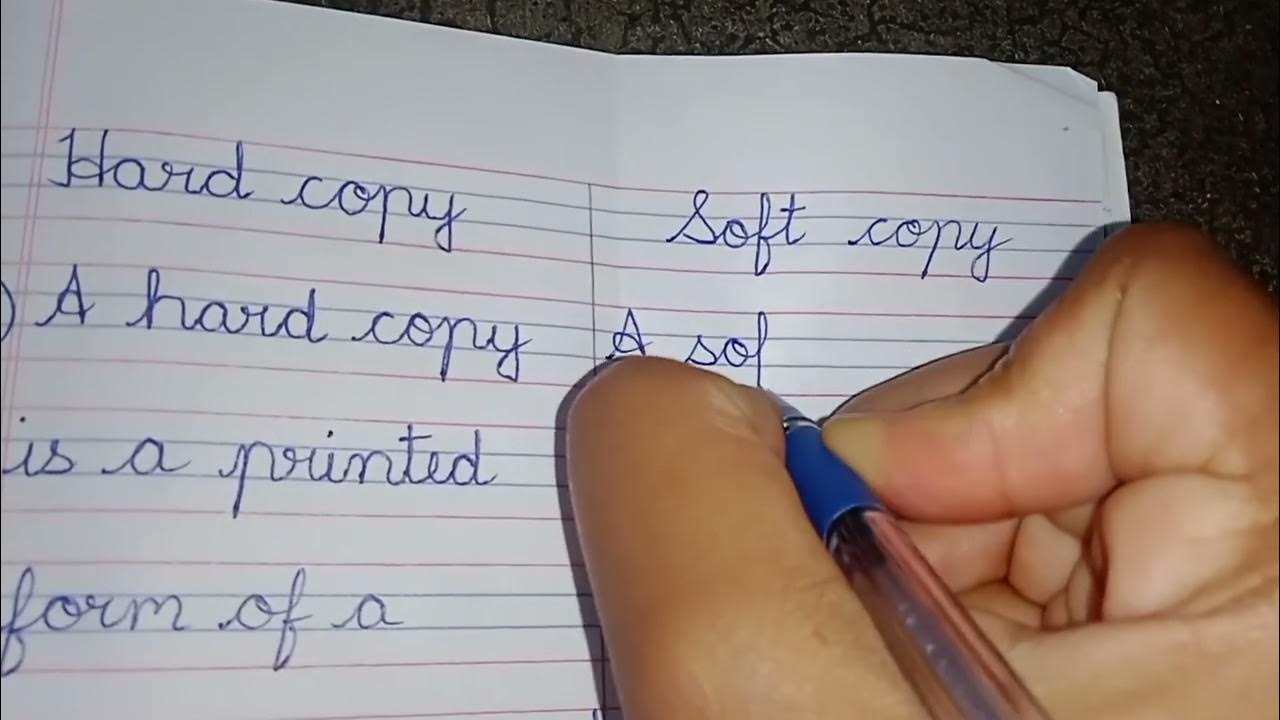 Hard copy
Soft copy
) A hard copy
is a printed
form of a
A sof